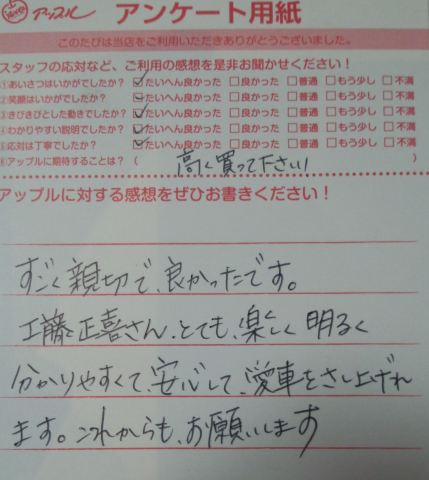 アップル アンケート用紙
このたびは当店をご利用いただきありがとうございました。
スタッフの応対など、ご利用の感想を是非お聞かせください！
①あいさつはいかがでしたか？ ☑たいへん良かった □良かった □普通 □もう少し □不満
②笑顔はいかがでしたか？ ☑たいへん良かった □良かった □普通 □もう少し □不満
③きびきびとした動きでしたか？ ☑たいへん良かった □良かった □普通 □もう少し □不満
④わかりやすい説明でしたか？ ☑たいへん良かった □良かった □普通 □もう少し □不満
⑤応対は丁寧でしたか？ ☑たいへん良かった □良かった □普通 □もう少し □不満
⑥アップルに期待することは？（ 高く買って下さい! ）
アップルに対する感想をぜひお書きください！
すごく親切で、良かったです。
工藤正喜さん、とても、楽しく明るく
分かりやすくて、安心して、愛車をさし上げれ
ます。これからも、お願いします